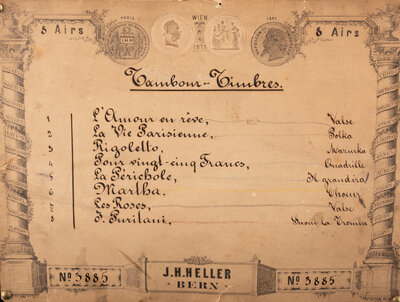 8 Airs
PARIS
WIEN
1873
8 Airs
Tambour-Timbres.
1 L'Amour en rêve, Valse
2 La Vie Parisienne, Polka
3 Rigoletto, Mazurka
4 Pour vingt-cinq Francs, Quadrille
5 La Périchole, Il grandira
6 Martha, Choeur
7 Les Roses, Valse
8 I. Puritani, Suoni la Tromba
No 3885
J.H. HELLER
BERN
No 3885